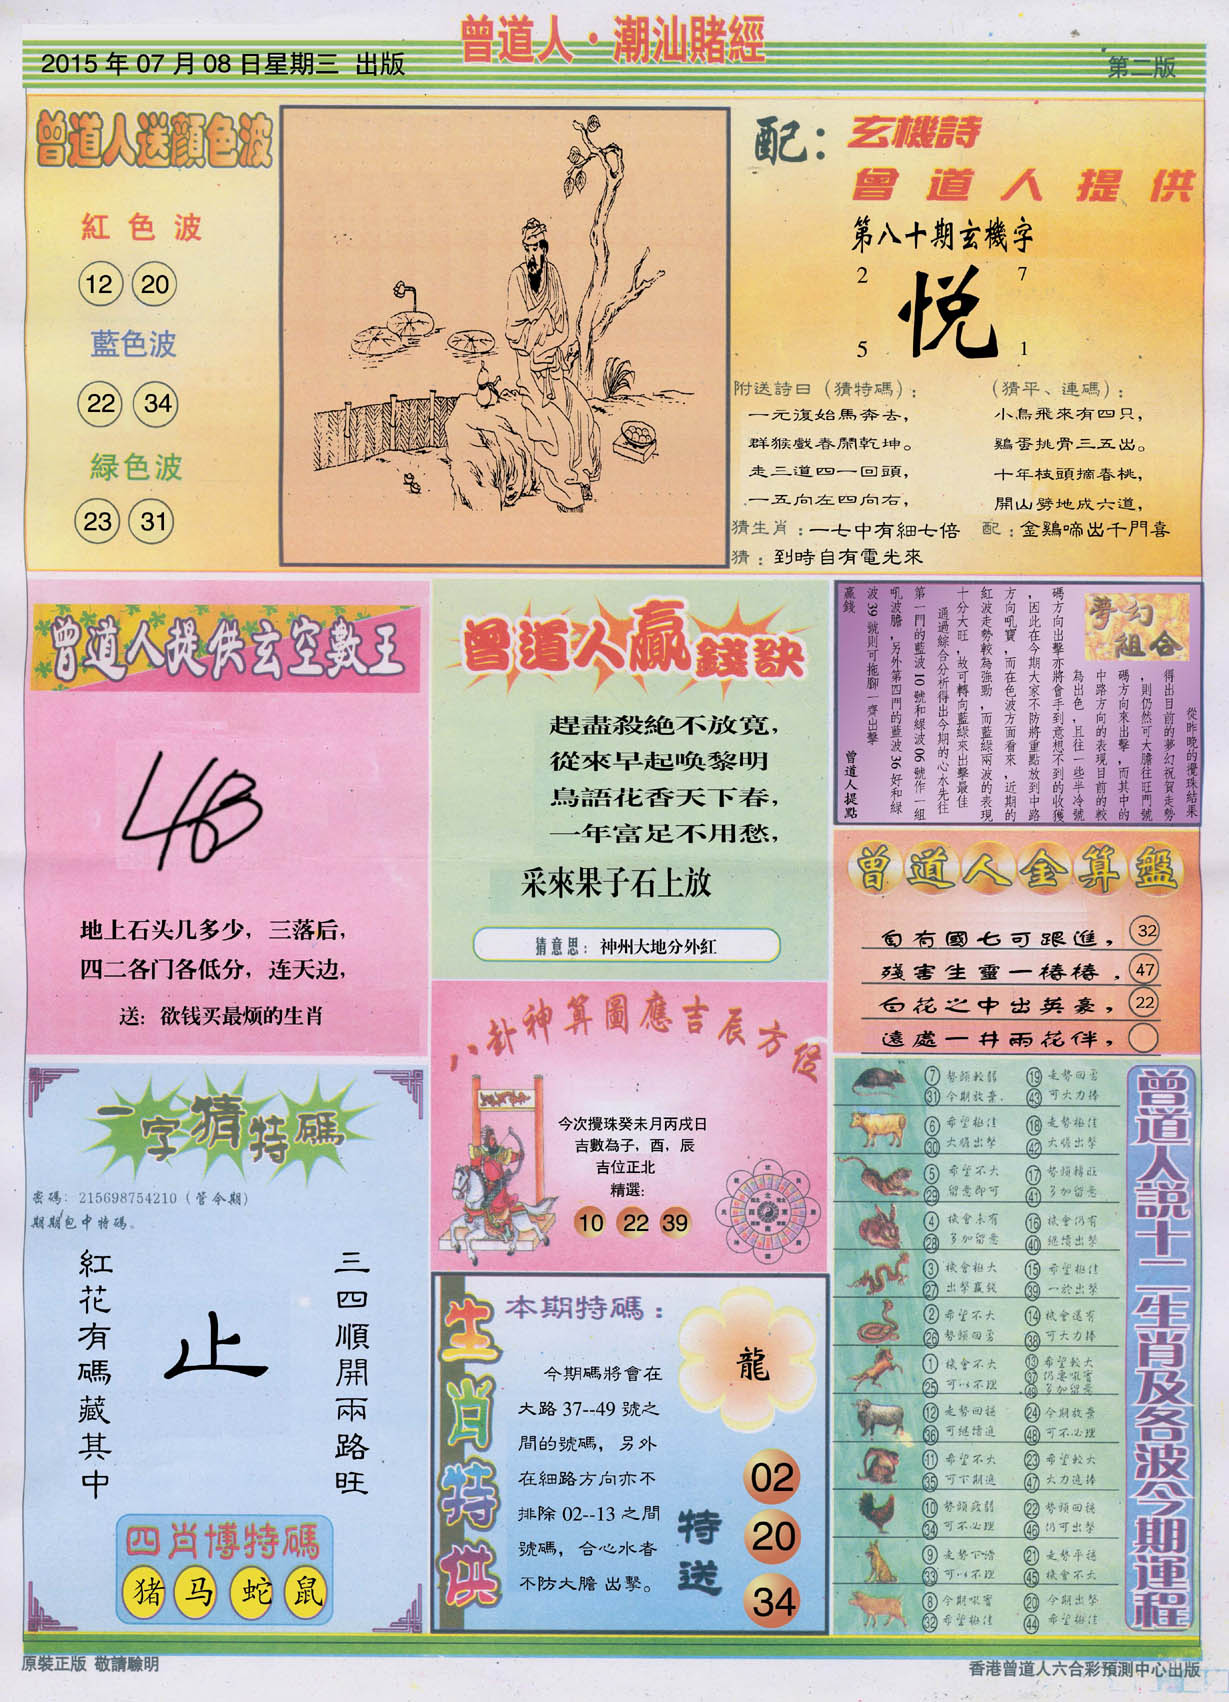 曾道人·潮汕賭經
2015年07月08日星期三 出版
第二版
曾道人送顏色波
紅色波
12 20
藍色波
22 34
緑色波
23 31
配：玄機詩
曾道人提供
第八十期玄機字
2 7
悦
5 1
附送詩曰（猜特碼）：
一元復始馬奔去，
群猴戲春鬧乾坤。
走三道四一回頭，
一五向左四向右，
（猜平、連碼）：
小鳥飛來有四只，
鷄蛋挑骨三五出。
十年枝頭摘春桃，
開山劈地成六道，
猜生肖：一七中有細七倍
配：金鷄啼出千門喜
猜：到時自有電光來
曾道人提供玄空數王
地上石头几多少，三落后，
四二各门各低分，连天边，
送：欲钱买最烦的生肖
曾道人贏錢訣
趕盡殺絶不放寬，
從來早起唤黎明
鳥語花香天下春，
一年富足不用愁，
采來果子石上放
猜意思：神州大地分外紅
夢幻
組合
從昨晚的攪珠結果
得出目前的夢幻祝賀走勢
，則仍然可大膽往旺門號
碼方向來出擊，而其中的
中路方向的表現目前的較
為出色，且往一些半冷號
碼方向出擊亦將會手到意想不到的收獲
，因此在今期大家不防將重點放到中路
方向吼寶，而在色波方面看來，近期的
紅波走勢較為強勁，而藍緑兩波的表現
十分大旺，故可轉向藍緑來出擊最佳
通過綜合分析得出今期的心水先往
第一門的藍波10號和緑波06號作一組
吼波膽，另外第四門的藍波36好和緑
波39號則可拖腳一齊出擊
贏錢
曾道人提點
曾道人金算盤
自有國七可跟進， 32
殘害生靈一樁樁． 47
白花之中出英豪， 22
遠處一井兩花伴，
八卦神算圖應吉辰方位
今次攪珠癸未月丙戌日
吉數為子，酉，辰
吉位正北
精選：
10 22 39
一字猜特碼
密碼：215698754210（管今期）
期期包中特碼。
紅花有碼藏其中
止
三四順開兩路旺
四肖博特碼
猪 马 蛇 鼠
生肖特供
本期特碼：
龍
今期碼將會在
大路37--49號之
間的號碼，另外
在細路方向亦不
排除02--13之間
號碼，合心水者
不防大膽出擊。
特送
02
20
34
曾道人説十二生肖及各波今期運程
⑦ 勢頭較弱 ⑲ 走勢回勇
㉛ 今期放棄． ㊸ 可大力捧
⑥ 希望極佳 ⑱ 走勢極佳
㉚ 大膽出擊 ㊷ 大膽出擊
⑤ 希望不大 ⑰ 勢頭轉旺
㉙ 留意即可 ㊶ 多加留意
④ 機會未有 ⑯ 機會仍有
㉘ 多加留意 ㊵ 繼續出擊
③ 機會極大 ⑮ 希望極佳
㉗ 出擊贏錢 ㊴ 一於出擊
② 希望不大 ⑭ 機會還有
㉖ 勢頭回勇 ㊳ 可大力捧
① 機會不大 ⑬ 希望較大
㊲ 仍要吼實
㉕ 可以不理 ㊾ 多加留意
⑫ 走勢回穩 ㉔ 今期放棄
㊱ 可繼續追 ㊽ 可不必理
⑪ 希望不大 ㉓ 希望較大
㉟ 可下期追 ㊼ 大力追捧
⑩ 勢頭疲弱 ㉒ 勢頭回穩
㉞ 可不必理 ㊻ 仍可出擊
⑨ 走勢下滑 ㉑ 走勢平穩
㉝ 可以不理 ㊺ 機會不大
⑧ 今期吼實 ⑳ 今期出擊
㉜ 希望極佳 ㊹ 希望極佳
原裝正版 敬請驗明
香港曾道人六合彩預測中心出版